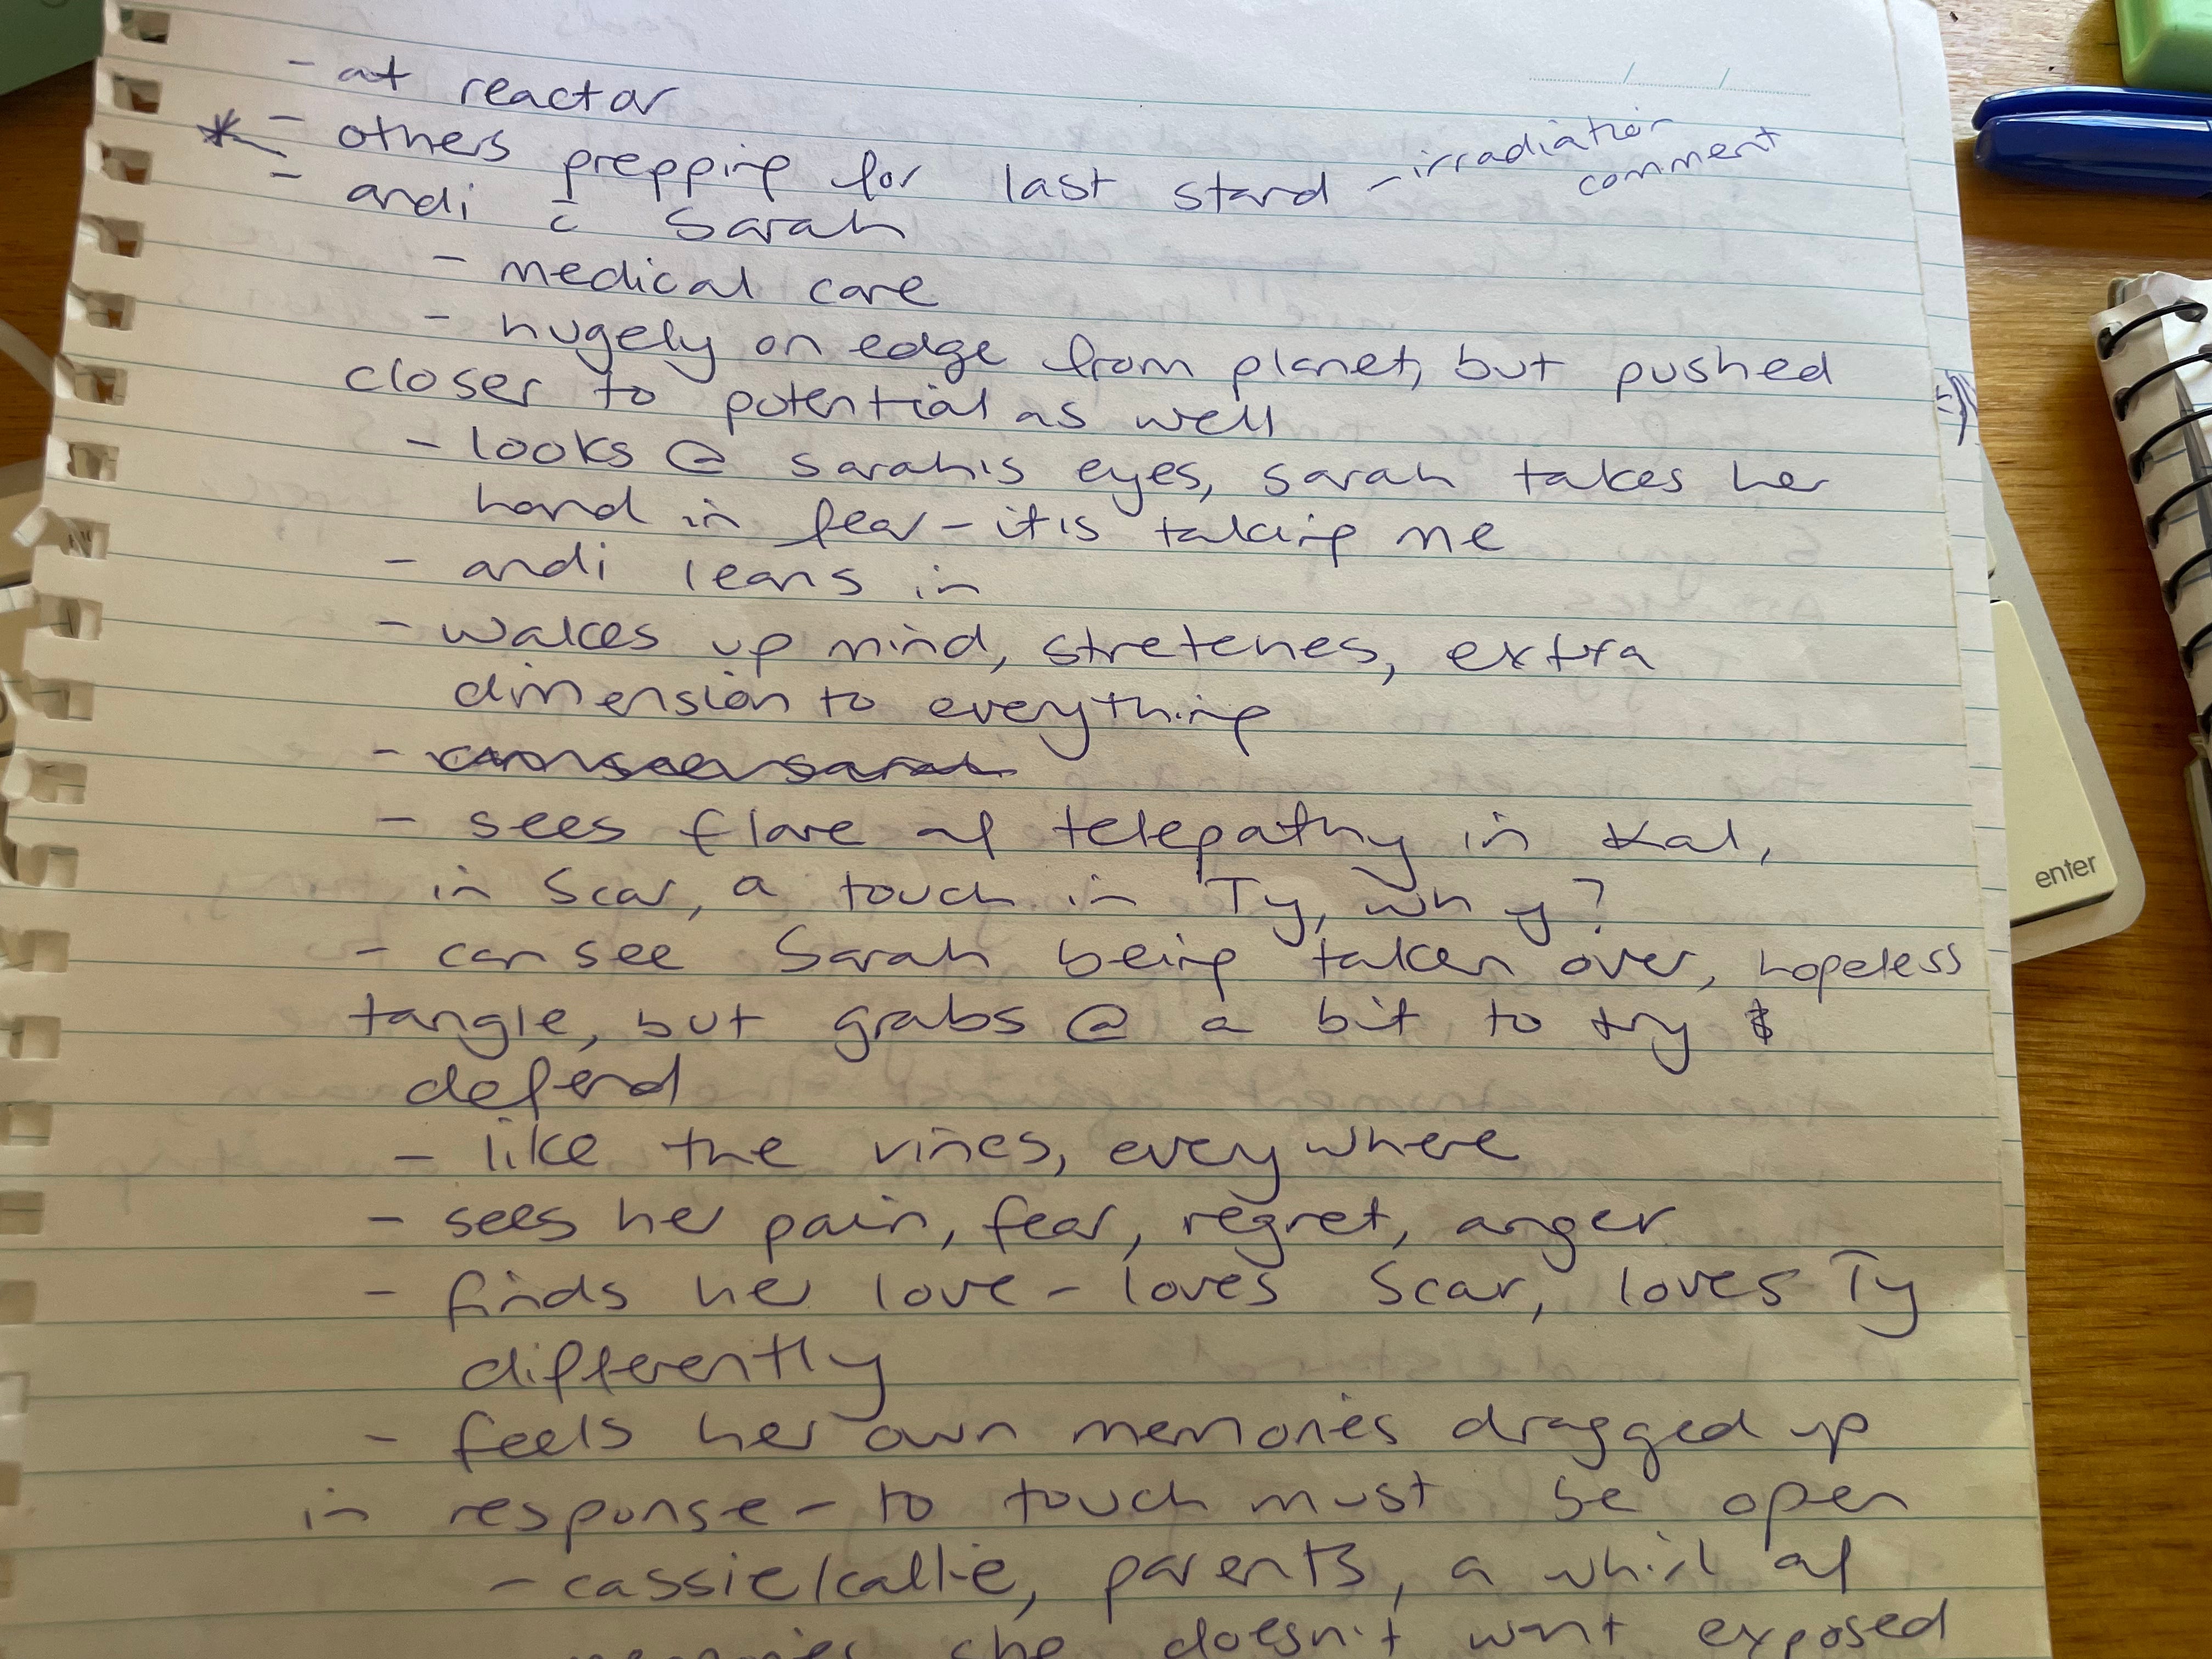 - at reactor
* - others prepping for last stand - irradiation comment
- andi c̄ Sarah
- medical care
- hugely on edge from planet, but pushed
closer to potential as well
- looks @ sarah's eyes, sarah takes her
hand in fear - it's taking me
- andi leans in
- wakes up mind, stretches, extra
dimension to everything
- sees flare of telepathy in Kal,
in Scar, a touch in Ty, why?
- can see Sarah being taken over, hopeless
tangle, but grabs @ a bit to try &
defend
- like the vines, everywhere
- sees her pain, fear, regret, anger
- finds her love - loves Scar, loves Ty
differently
- feels her own memories dragged up
in response - to touch must be open
- cassie/callie, parents, a whirl of
memories she doesn't want exposed
enter